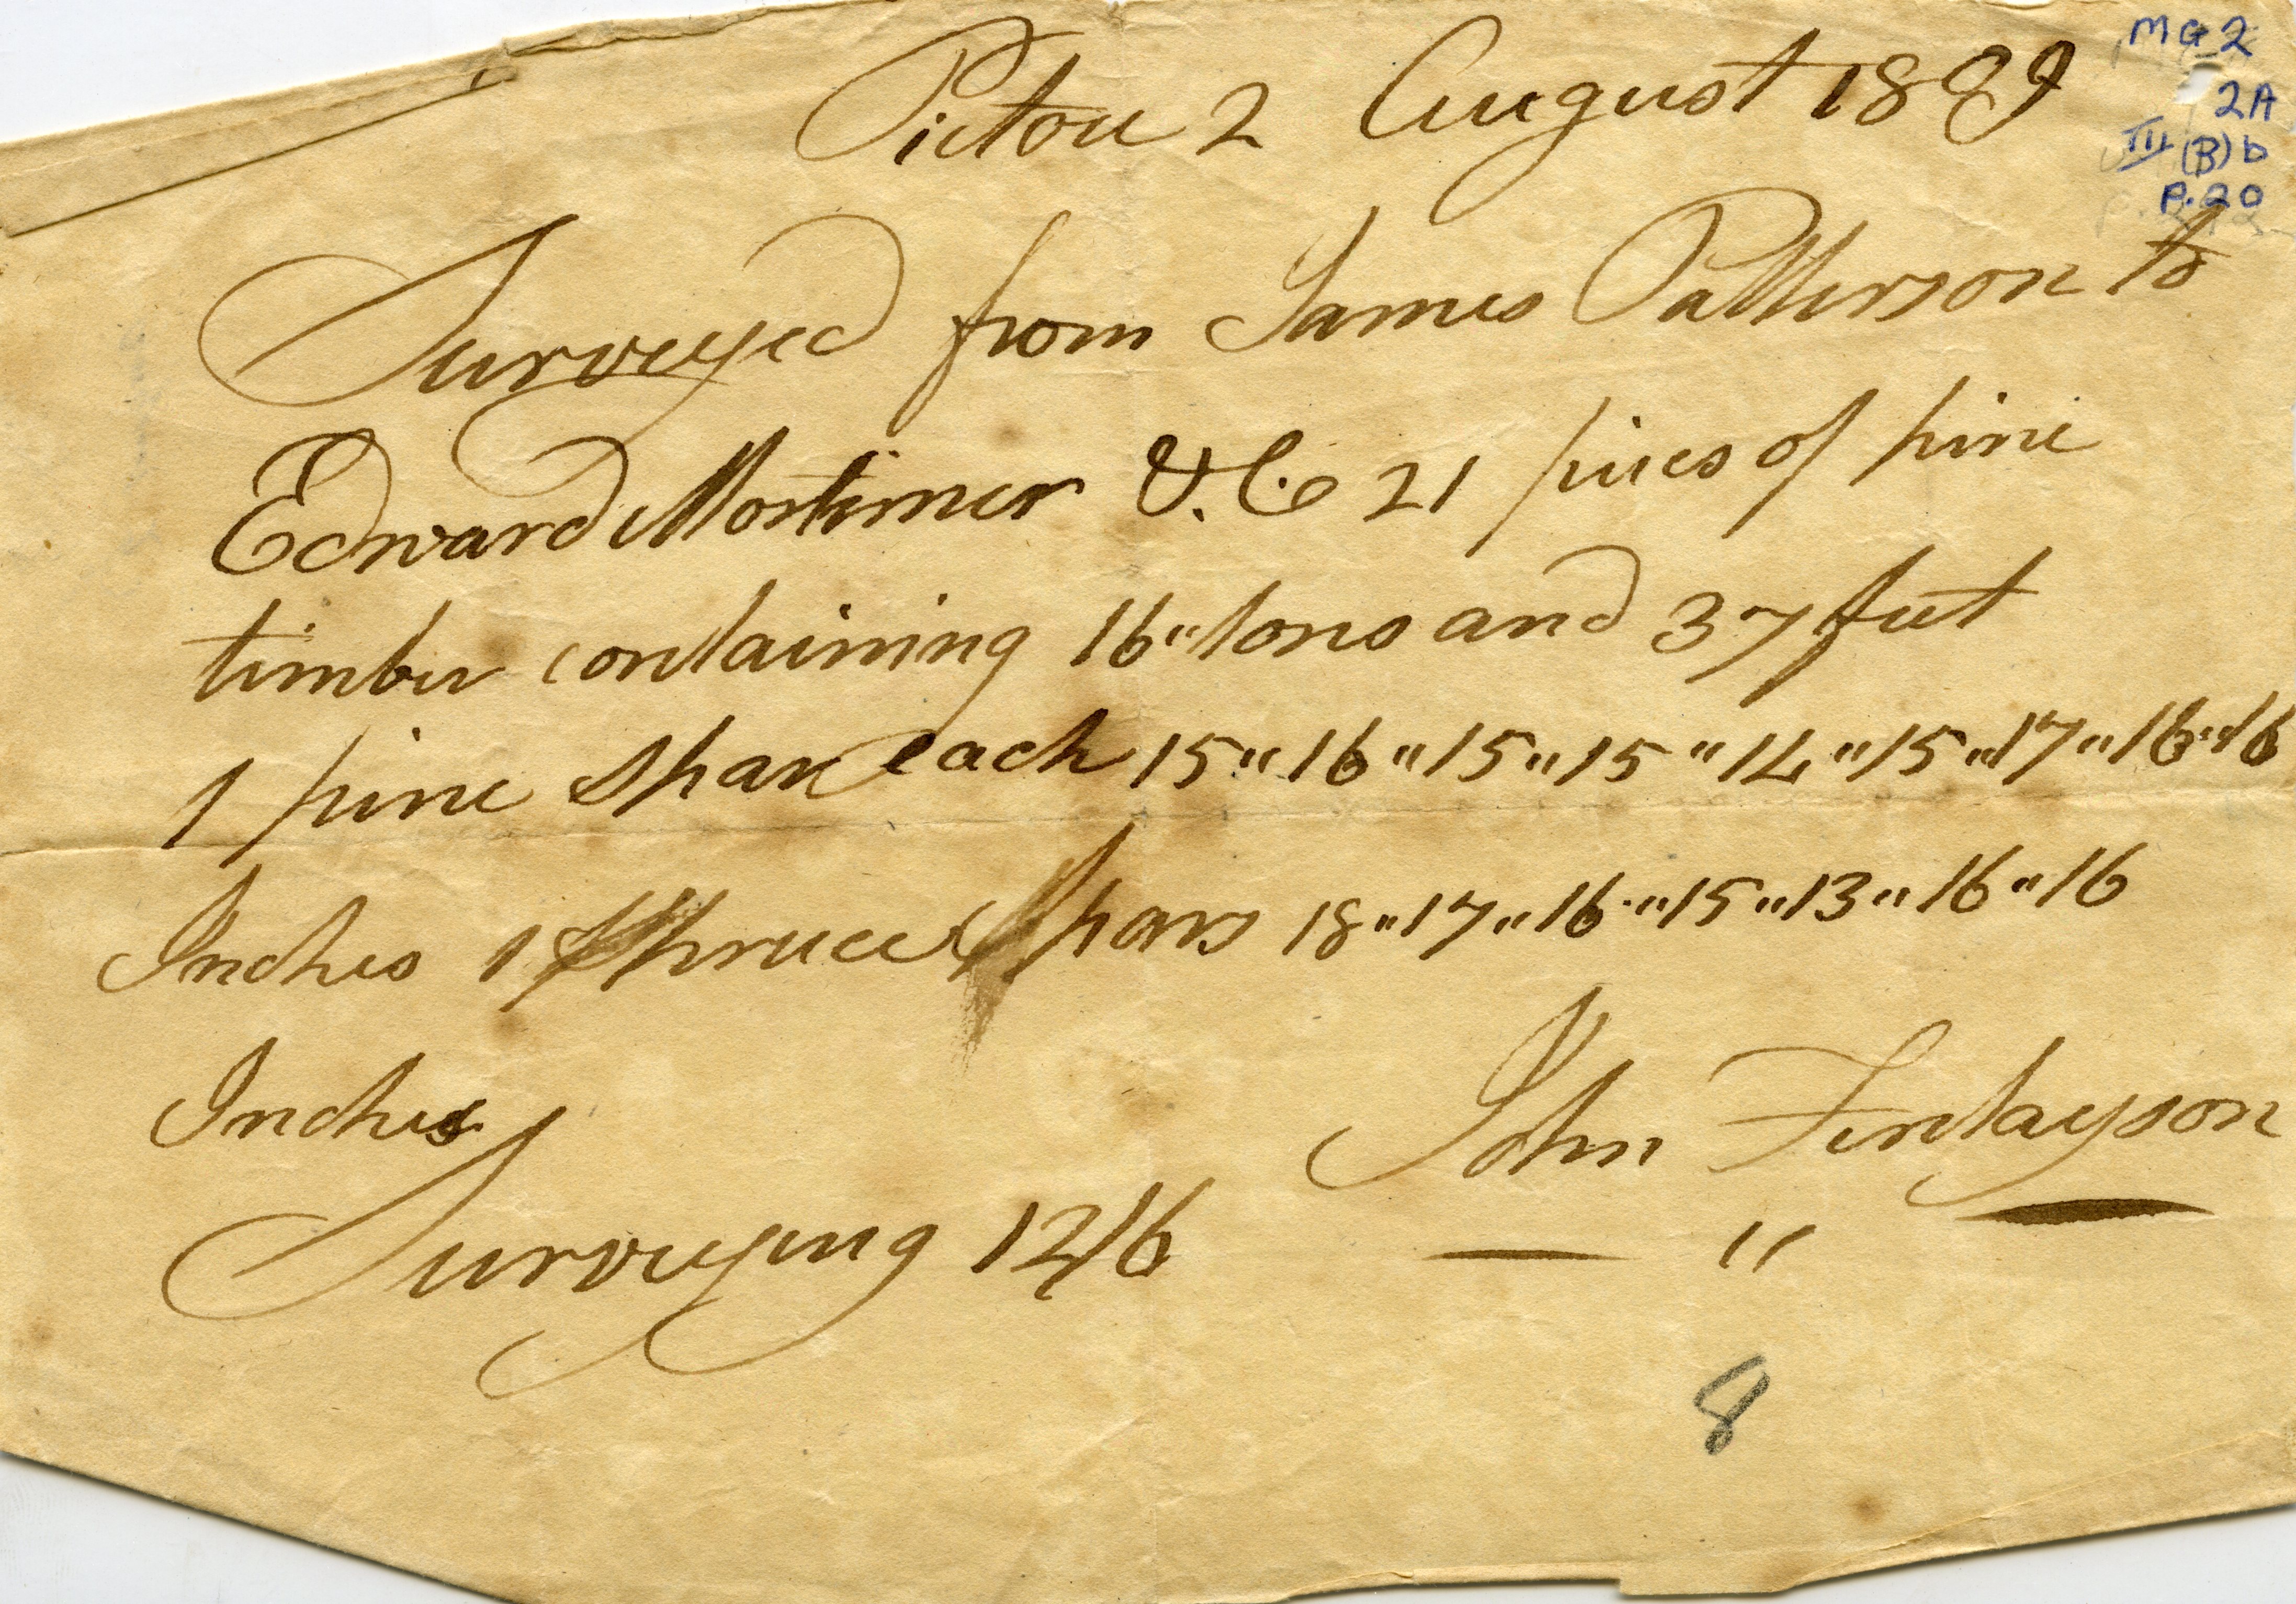 Pictou 2 August 1809
MG 2
2A
III (B) b
P. 20
Surveyed from James Patterson to
Edward Mortimer & Co 21 pieces of pine
timber containing 16 " tons and 37 feet
1 pine Spar each 15 " 16 " 15 " 15 " 14 " 15 " 17 " 16 " 16
Inches 1 Spruce Spars 18 " 17 " 16 " 15 " 13 " 16 " 16
Inches
John Finlayson
"
Surveying 12/6
8